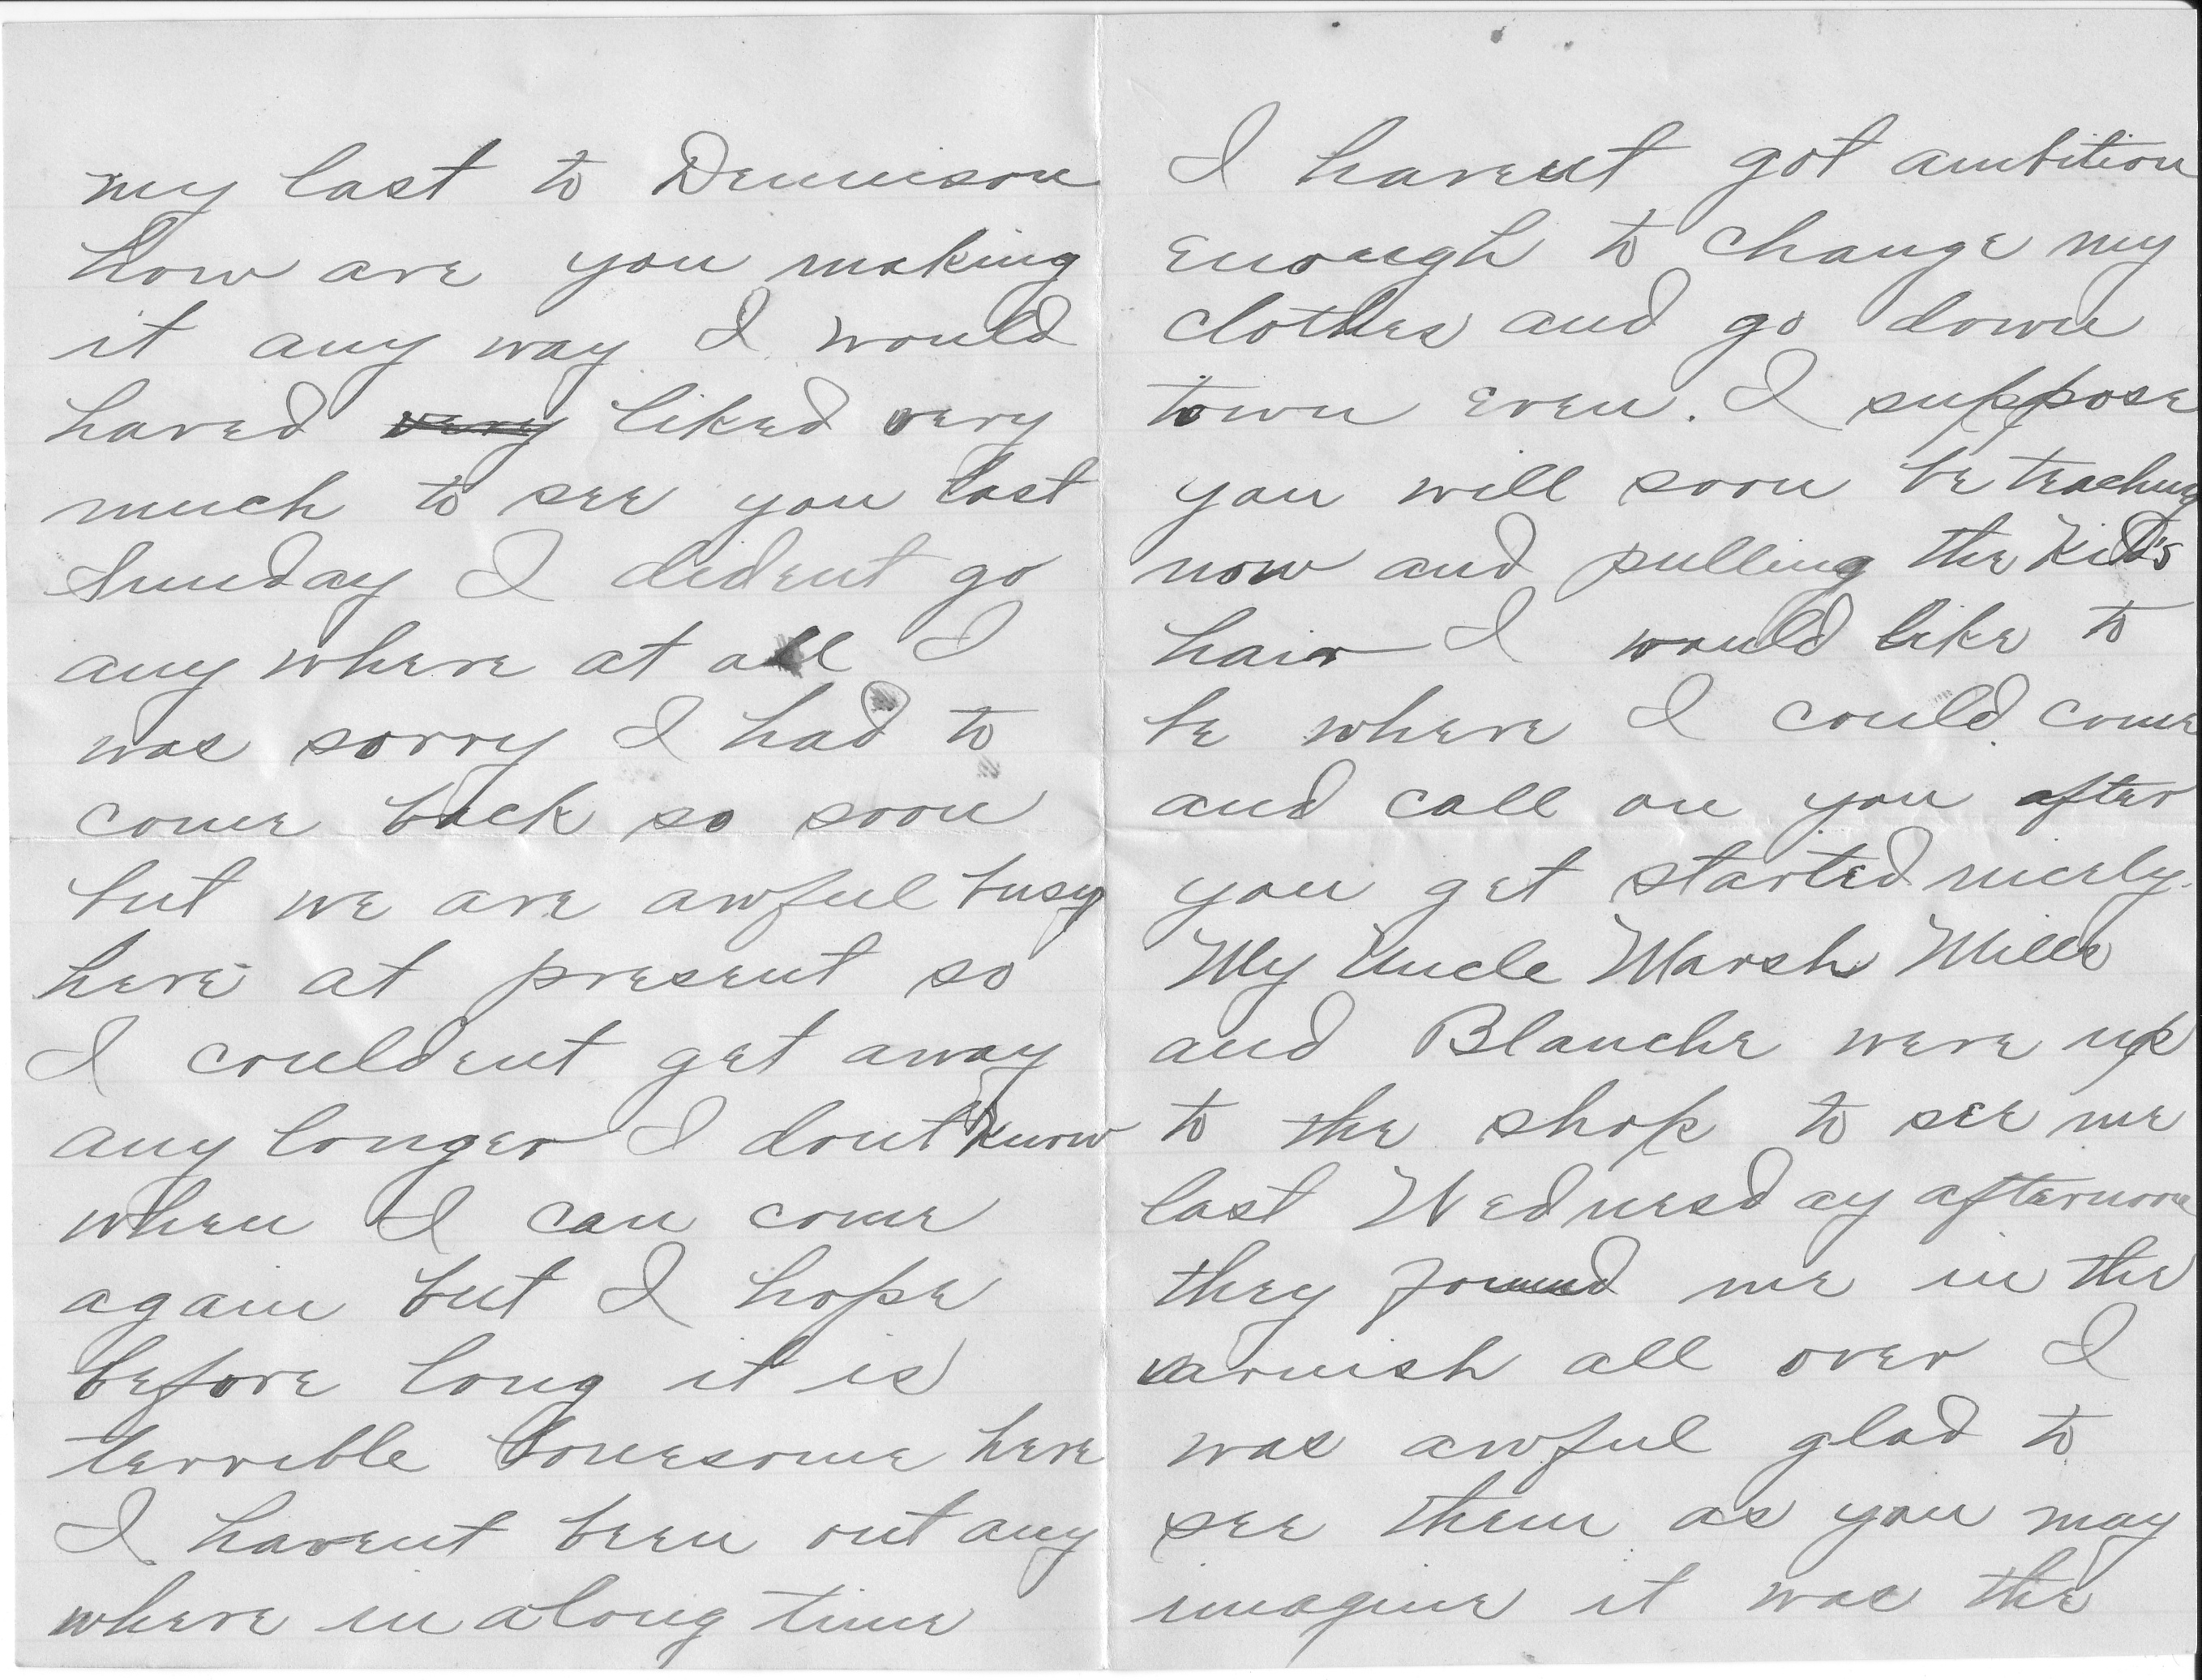 my last to Dennison
how are you making
it any way I would
haved very liked very
much to see you last
Sunday I did'ent go
any where at all I
was sorry I had to
come back so soon
but we are awful busy
here at present so
I couldent get away
any longer I dont know
when I can come
again but I hope
before long it is
terrible lonesome here
I havent been out any
where in along time
I havent got ambition
enough to change my
clothes and go down
town even. I suppose
you will soon be teaching
now and pulling the Kid's
hair I would like to
be where I could come
and call on you after
you get started nicely.
My Uncle Marsh Mills
and Blanche were up
to the shop to see me
last Wednesday afternoon
they found me in the
varnish all over I
was awful glad to
see them as you may
imagine it was the